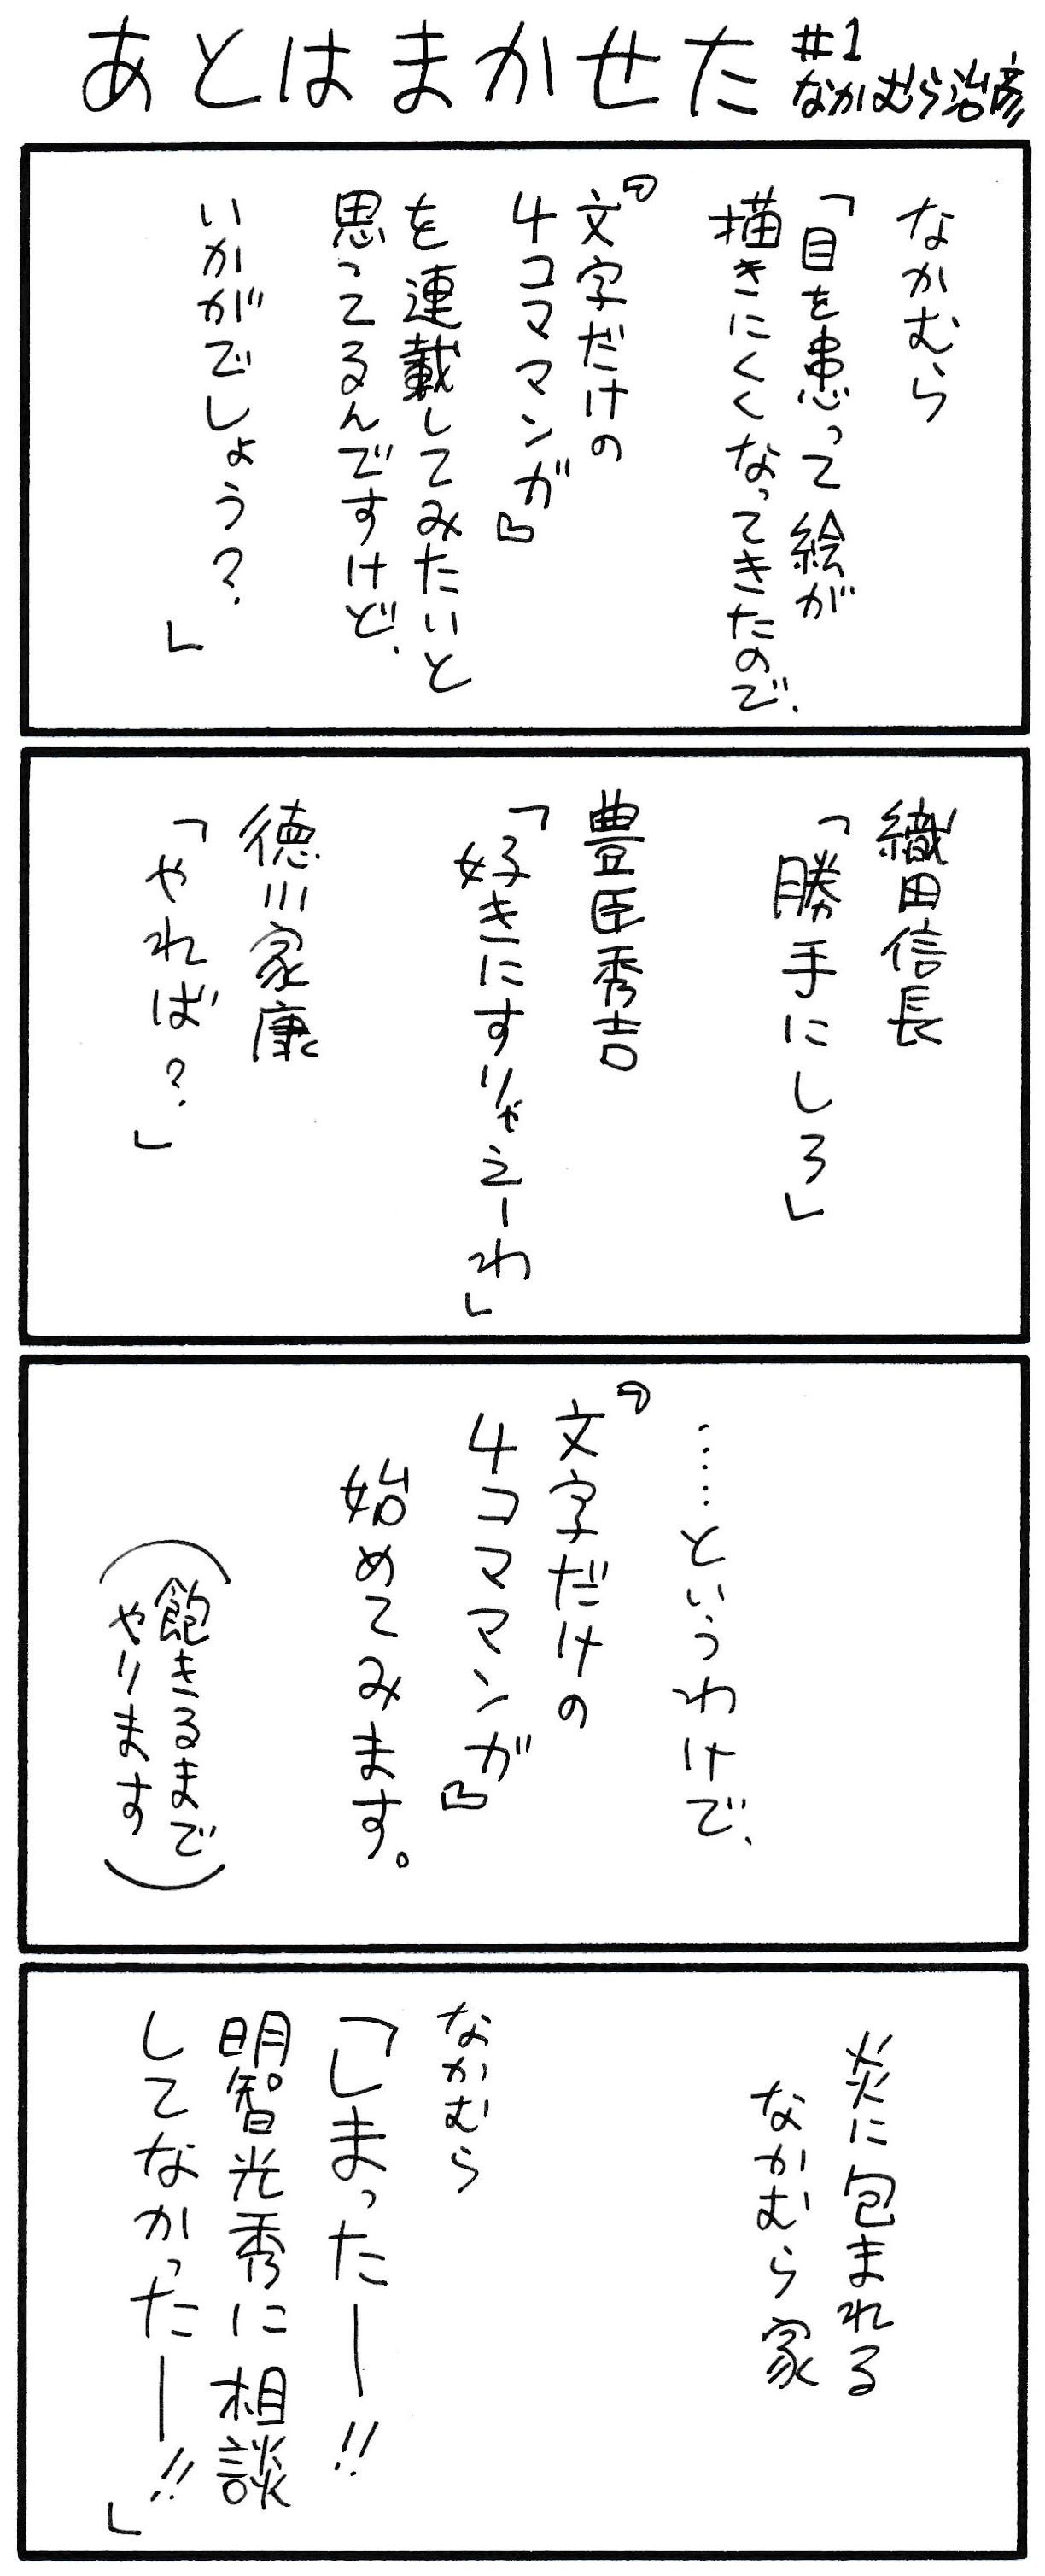 あとはまかせた
#1
なかむら治彦
なかむら
「目を患って絵が
描きにくくなってきたので、
『文字だけの
4コママンガ』
を連載してみたいと
思ってるんですけど、
いかがでしょう?」
織田信長
「勝手にしろ」
豊臣秀吉
「好きにすりゃえーわ」
徳川家康
「やれば?」
……というわけで、
『文字だけの
4コママンガ』
始めてみます。
(飽きるまで
やります)
炎に包まれる
なかむら家
なかむら
「しまったー!!
明智光秀に相談
してなかったー!!」